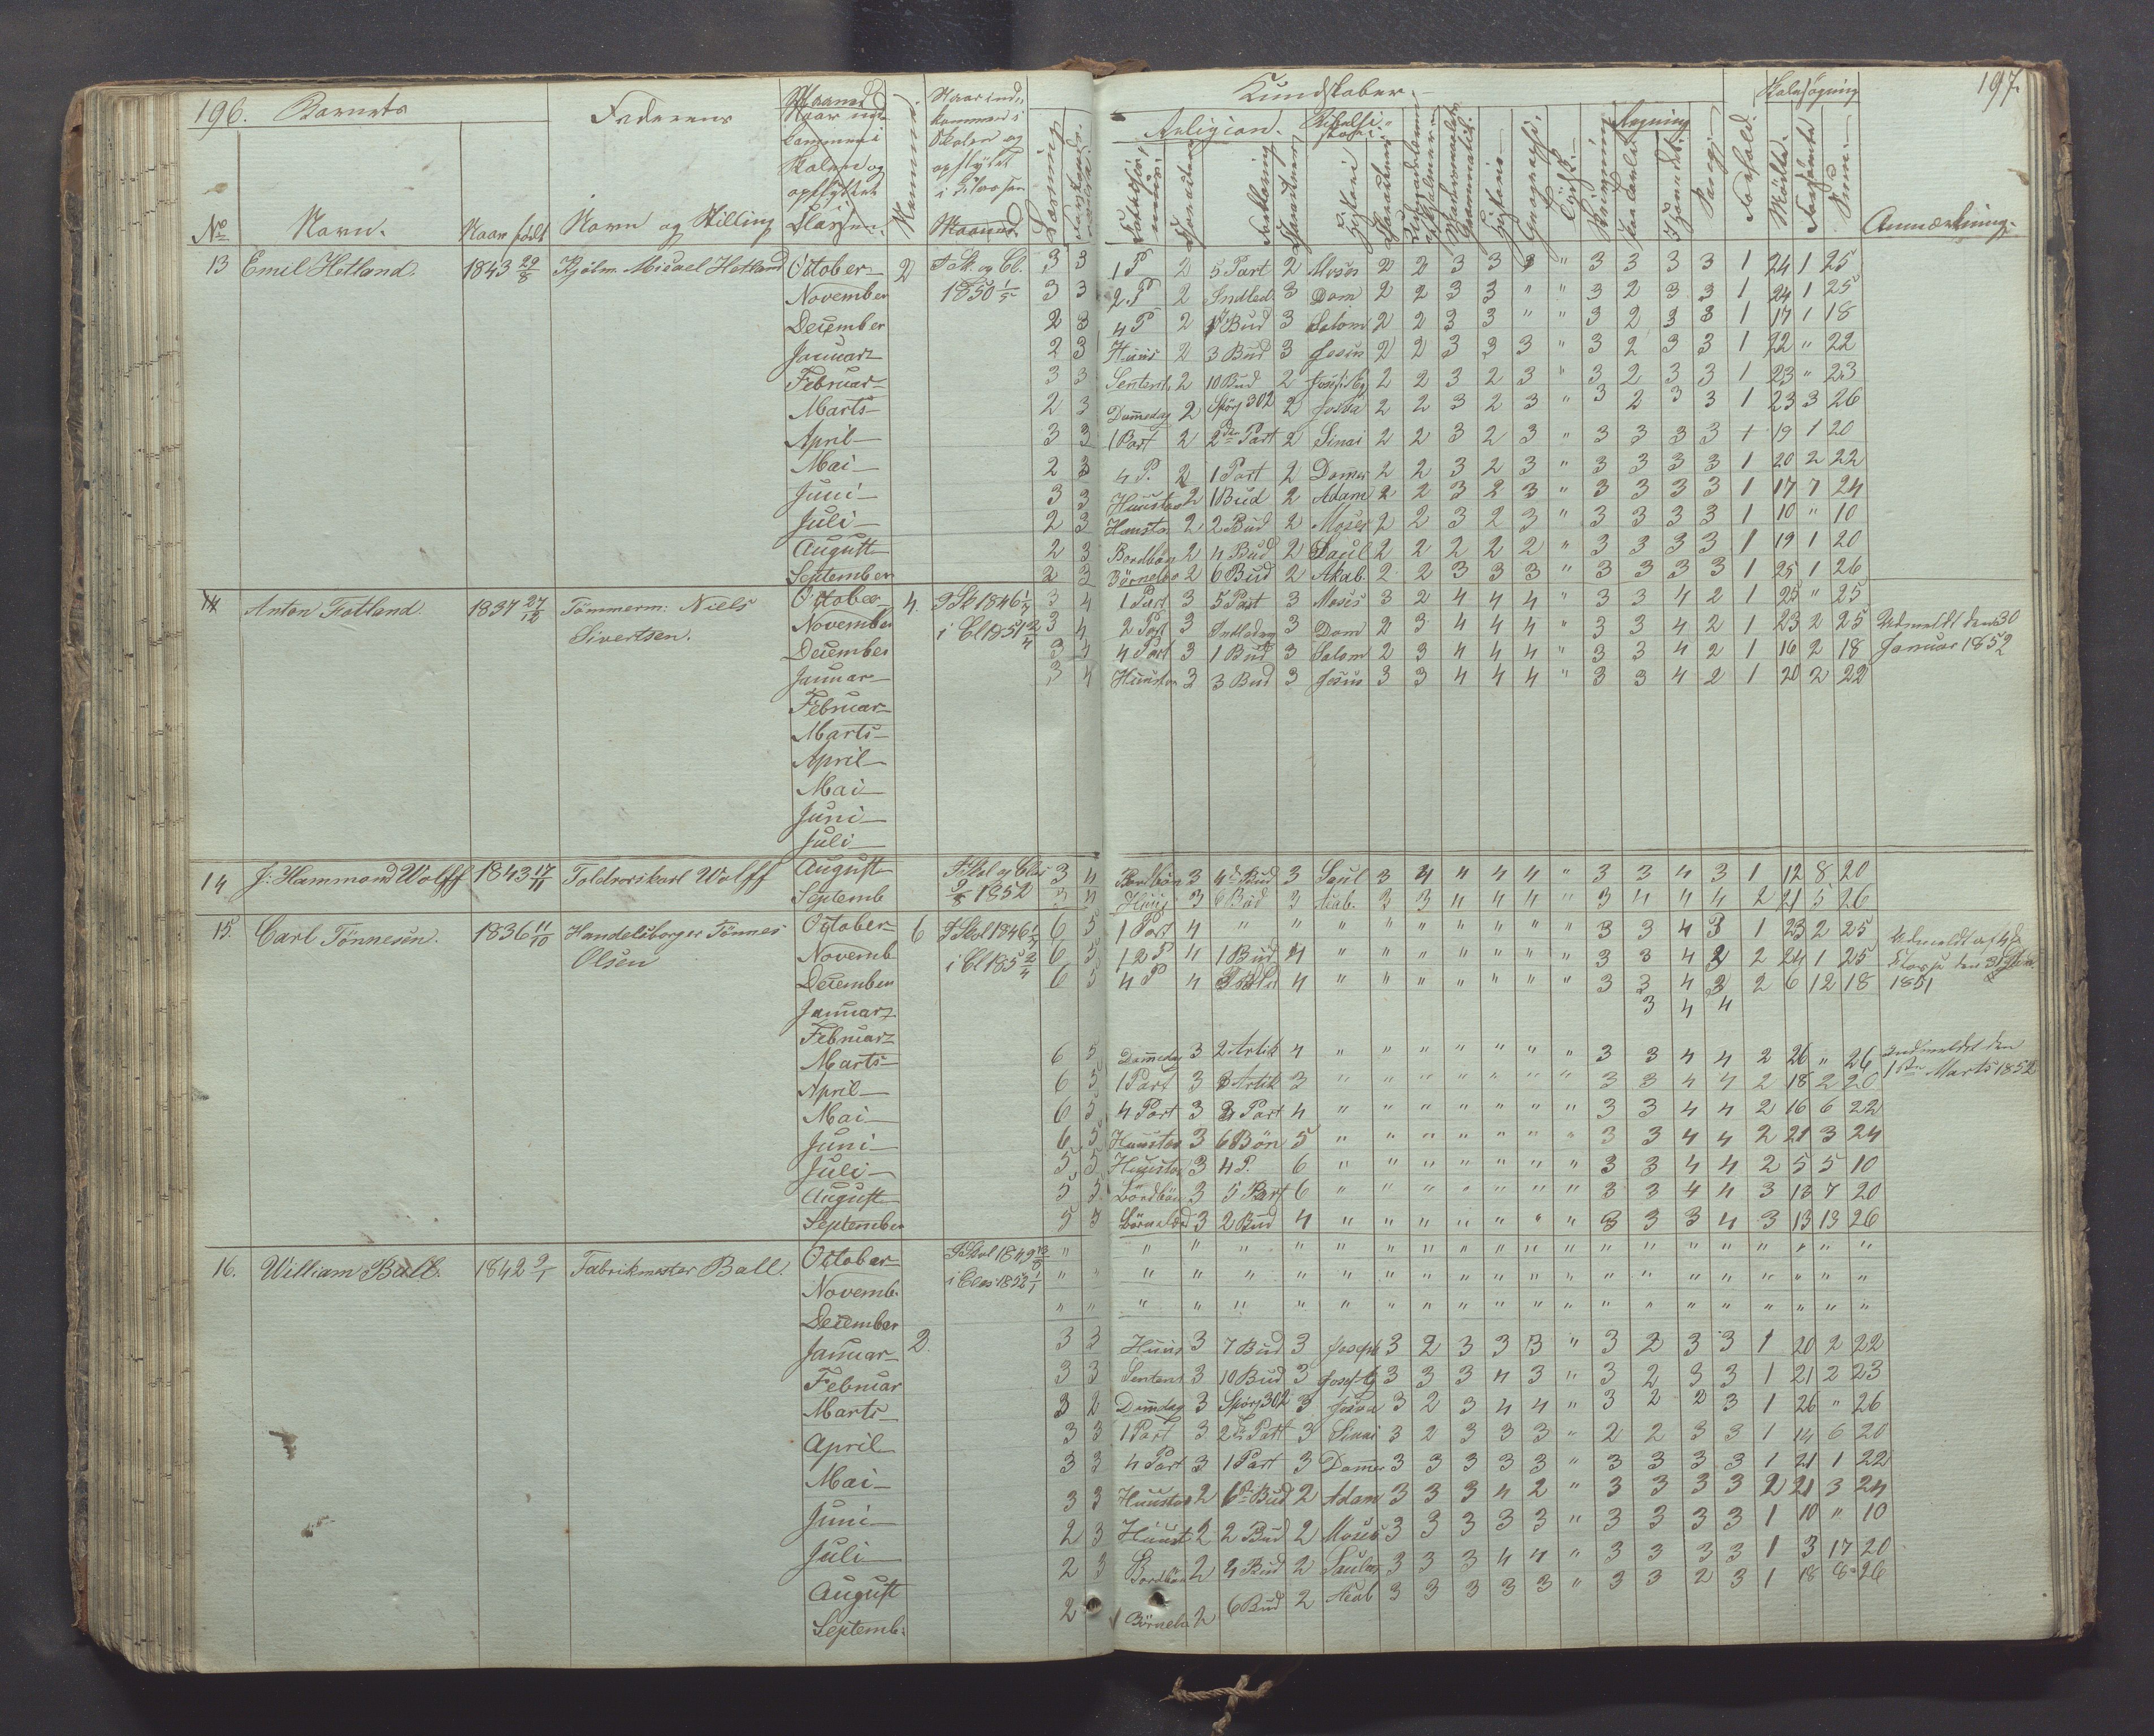 196. Barnets
Faderens
Maaned
Naar ind-
kommen i
Skolen og
opflyttet
i Klassen
Kundskaber.
Religion.
Regning
Skolesøgning
197.
No
Navn.
Naar født
Navn og Stilling
Klassen.
Maaned
Læsning
Forklaring
Historie
Geographi
Skrivning
Sang
Forhold.
Mødte.
Forsømte
Summa
Anmærkning.
13 Emil Hetland. 1843 29/8 Kjølm. Micael Hetland October 2 I Sk. og Cl. 3 3 1 P 2 5 Part 2 Moses 2 2 3 3 3 " 3 3 3 3 1 24 1 25
November 1850 1/5 3 3 2 P 2 Indled. 3 Dom 2 2 3 3 " " 3 2 3 3 1 24 1 25
December 2 3 4 P 2 1 Bud 3 Salom 2 2 3 3 " " 3 2 3 3 1 17 1 18
Januar 2 3 Huus 2 3 Bud 3 Jesus 2 2 3 3 3 " 3 2 3 3 1 22 " 22
Februar 3 3 Sentens 2 10 Bud 2 2 2 3 2 3 " 3 2 3 3 1 23 " 23
Marts 2 3 Dommedag 2 Spörg 302 2 Josva 2 2 3 2 3 " 3 2 3 3 1 23 3 26
April 3 3 1 Part 2 2den Part 2 Sinai 2 2 3 2 3 " 3 3 3 3 1 19 1 20
Mai 2 3 4 P. 2 1 Part 2 Domer 2 2 3 2 3 " 3 3 3 3 1 20 2 22
Juni 3 3 Huustav 2 1 Bud 2 Adam 2 2 3 2 3 " 3 3 3 3 1 17 7 24
Juli 2 3 Huusta 2 2 Bud 2 Moses 2 2 3 2 3 " 3 3 3 3 1 10 " 10
August 2 3 Bordbøn 2 4 Bud 2 Saul 2 2 2 2 2 " 3 3 3 3 1 19 1 20
September 2 3 Börnelær 2 6 Bud 2 Akab. 2 2 3 3 3 " 3 3 3 3 1 25 1 26
14 Anton Fotland. 1837 27/12 Tömmerm: Niels October 4. I Sk 1846 1/7 3 4 1 Part 3 5 Part 3 Moses 3 2 4 4 4 " 3 3 4 2 1 25 " 25
Sivertsen. November i Cl 1851 2/4 3 4 2 Part 3 Indledn 3 Dom 2 3 4 4 4 " 3 3 4 2 1 23 2 25 Udmeldt den 30
December 3 4 4 Part 3 1 Bud 3 Salom 2 3 4 4 4 " 3 3 4 2 1 16 2 18 Januar 1852
Januar 3 4 Huustav 3 3 Bud 3 Jesus 3 3 4 4 4 " 3 3 4 2 1 20 2 22
Februar
Marts
April
Mai
Juni
Juli
14 J: Hammond Wolff 1843 17/11 Toldrorskarl Wolff August I Skol og Clas 3 4 Bordbøn 3 4de Bud 3 Saul 3 4 4 4 4 " 3 3 4 3 1 12 8 20
Septemb 2/8 1852 3 4 Huus 3 6 Bud 3 Acab. 3 3 4 4 4 " 3 4 4 4 2 21 5 26
15. Carl Tönnesen. 1836 11/10 Handelsborger Tönnes October 6 I Skol 1846 1/7 6 5 1 Part 4 " " " " " " " " " 3 3 4 3 1 23 2 25 Udmeldt af 4de
Olsen Novemb i Cl 185 2/4 6 5 12 P 4 1 Bud 4 " " " " " " " 3 3 4 2 2 24 1 25 Klasse den 31
December 6 5 4 P 4 4 " " " " " " " 3 3 4 3 2 6 12 18 1851
Januar 3 4 4
Februar
Marts 6 5 Dommedag 3 2 Artik 4 " " " " " " " 3 3 4 4 2 26 " 26 Indmeldt den
April 6 5 1 Part 3 3 Artik 3 " " " " " " " 3 3 4 4 2 18 2 20 1ste Marts 1852
Mai 6 5 4 Part 3 2 Part 4 " " " " " " " 3 3 4 4 2 16 6 22
Juni 6 5 Huustav 3 6 Bön 5 " " " " " " " 3 3 4 4 2 21 3 24
Juli 5 5 Huustav 3 4 P. 6 " " " " " " " 3 3 4 4 2 5 5 10
August 5 5 Bordbön 3 5 Part 6 " " " " " " " 3 3 4 4 3 13 7 20
September 5 5 Börnelærd 3 2 Bud 4 " " " " " " " 3 3 3 4 3 13 13 26
16. William Ball. 1842 9/1 Fabrikmester Ball. October I Skol 1849 13/8 " " " " " " " " " " " " " " " " " " " " "
Novemb. i Clas 1852 1/1 " " " " " " " " " " " " " " " " " " " " "
December " " " " " " " " " " " " " " " " " " " " "
Januar 2. 3 3 Huus 3 7 Bud 3 Joseph 3 2 3 3 3 " 3 2 3 3 1 20 2 22
Februar 3 3 Sentens 3 10 Bud 3 3 3 3 4 3 " 3 2 3 3 1 21 2 23
Marts 3 2 Domdag 3 Spörg 302 3 Josva 3 2 3 4 4 " 3 2 2 3 1 26 " 26
April 3 3 1 Part 3 2de Part 3 Sinai 3 2 3 3 3 " 2 2 3 3 1 14 6 20
Mai 3 3 4 Part 3 1 Part 3 Domer 3 3 3 3 3 " 3 3 3 3 1 21 1 22
Juni 3 3 Huustav 2 1ste Bud 2 Adam 3 3 3 4 2 " 3 3 3 3 2 21 3 24
Juli 2 3 Huust 2 2 Bud 2 Moses 3 3 3 3 3 " 3 3 3 3 1 10 " 10
August 2 3 Bordbön 2 4 Bud 2 Saulus 3 3 3 4 4 " 3 3 3 3 1 3 17 20
Septemb: 2 Börnelæ 2 6 Bud 2 Acab 3 3 3 3 3 " 3 3 2 3 1 18 8 26